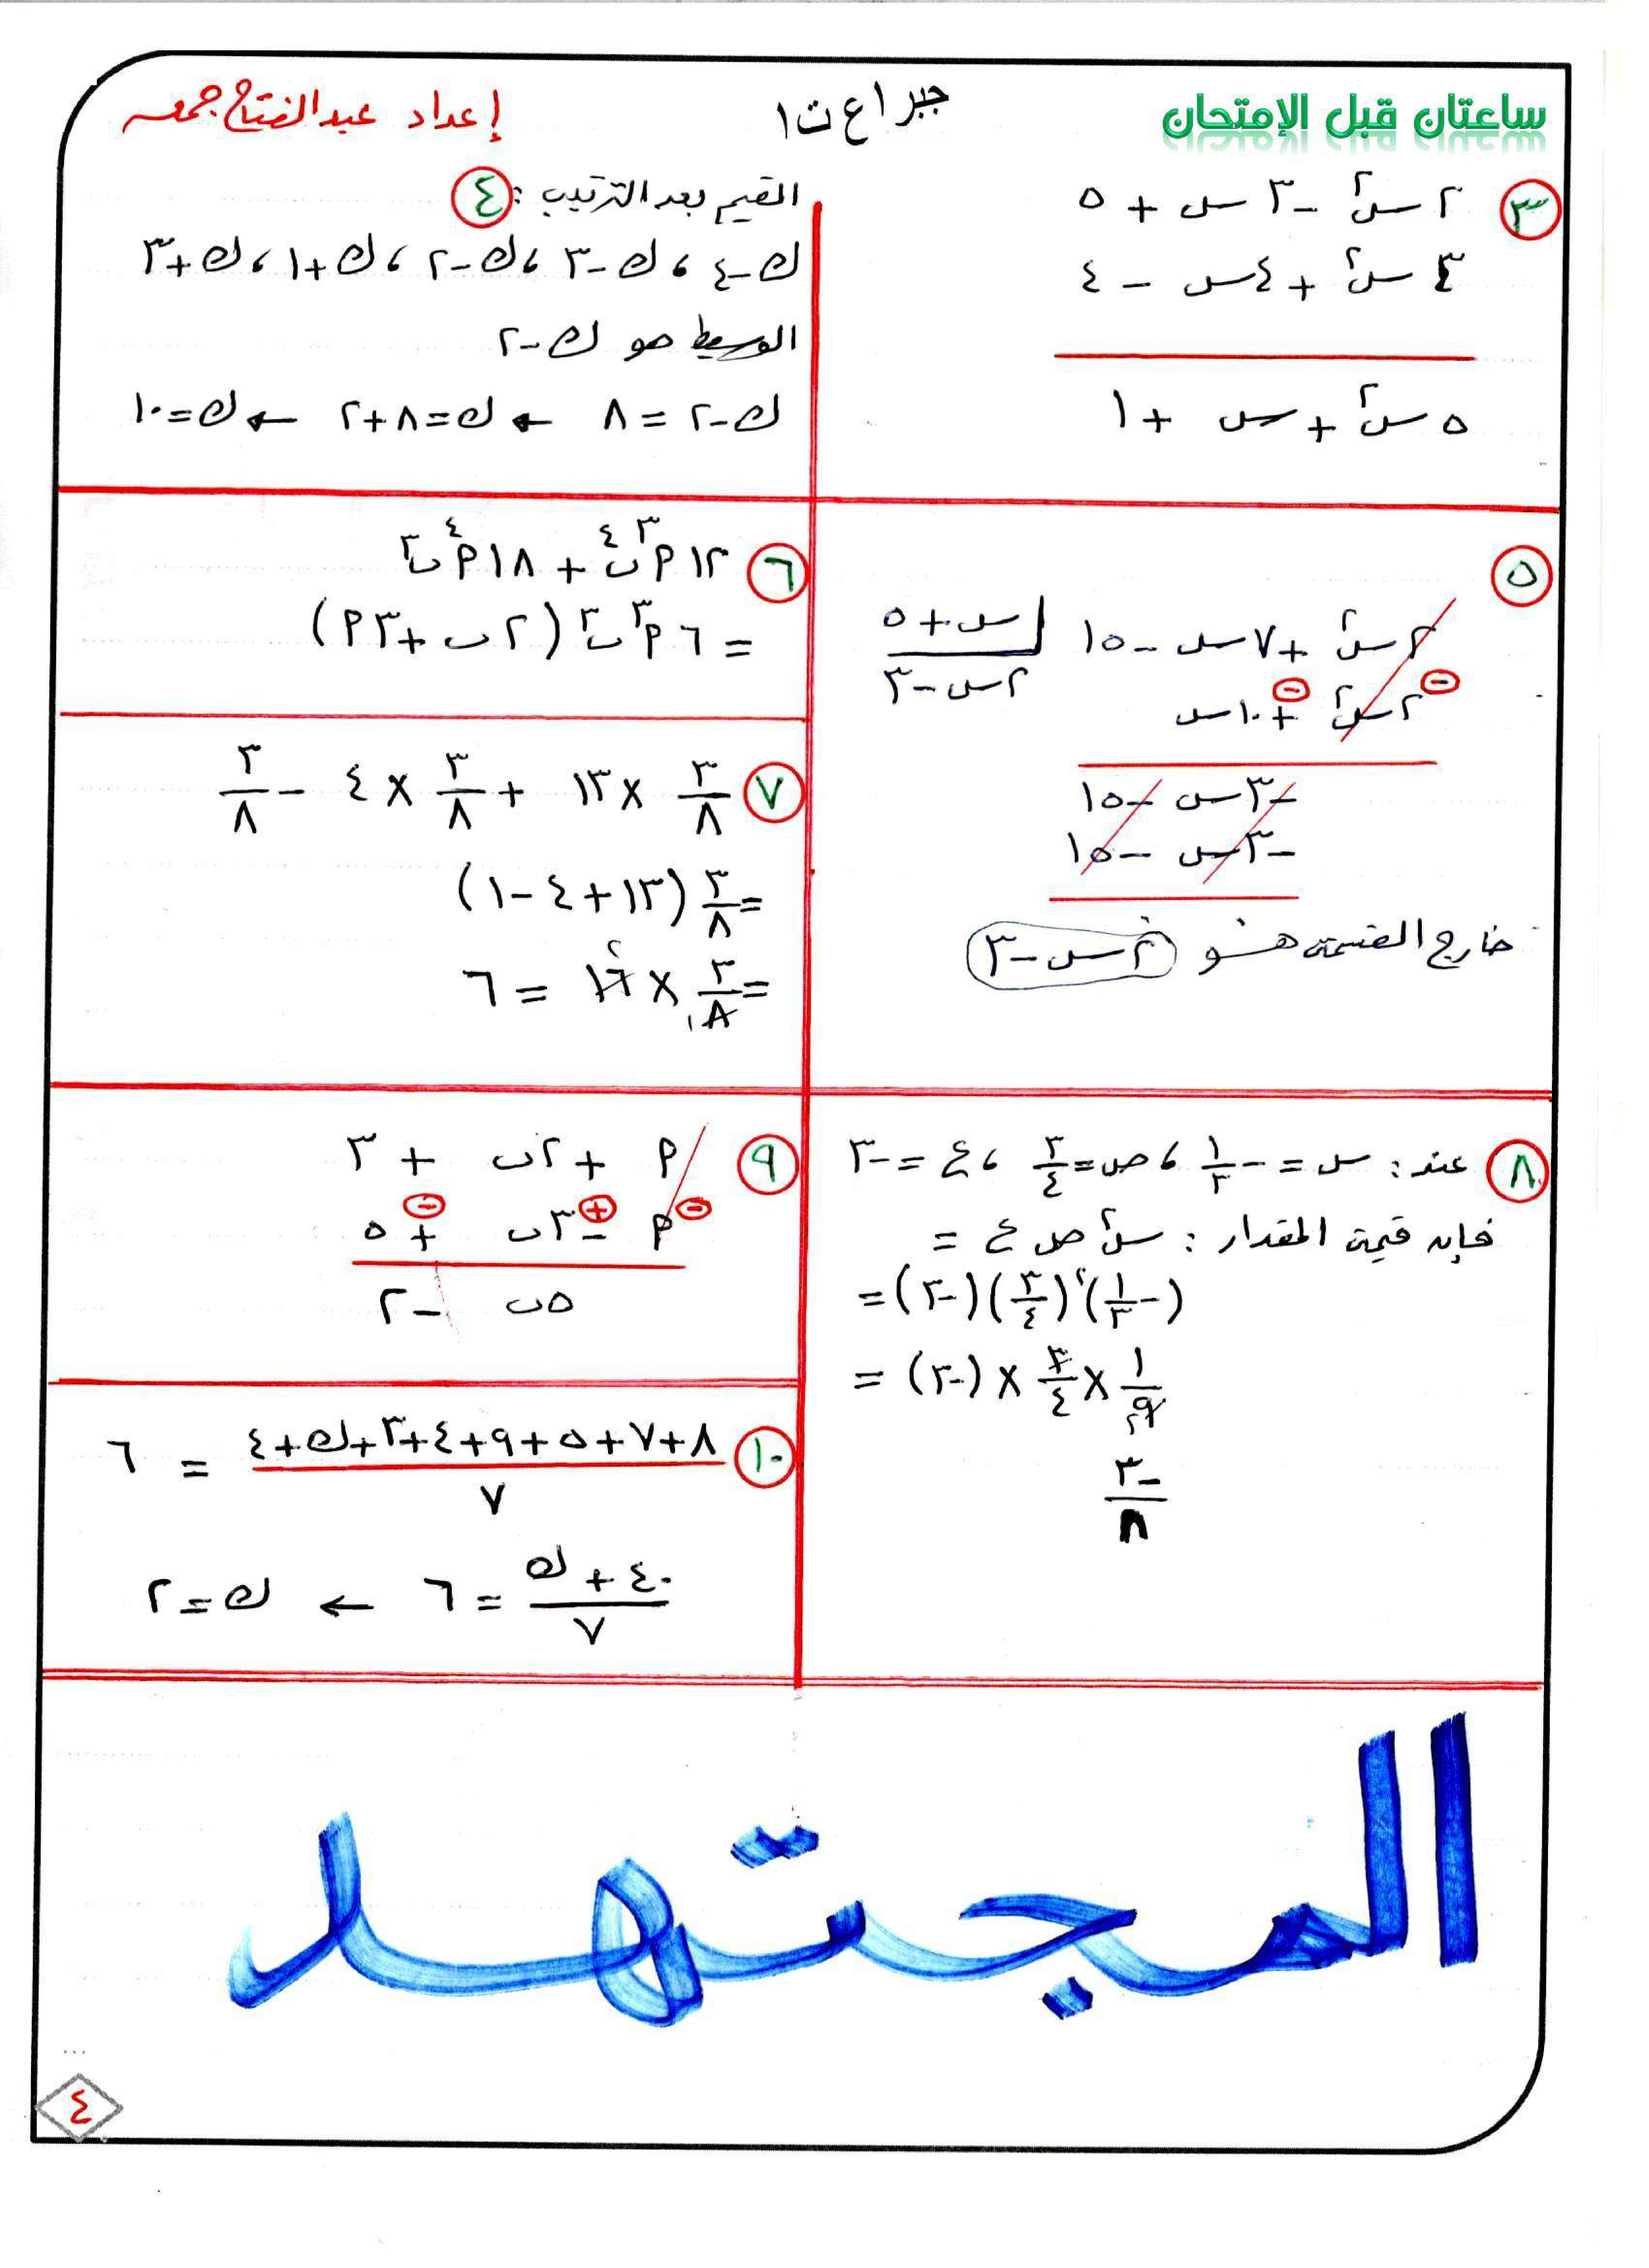 ساعتان قبل الإمتحان
جبر ١ع ت١
إعداد عبدالفتاح جمعه
٣
٢س٢ - ٣س + ٥
٣س٢ + ٤س - ٤
٥س٢ + س + ١
٤
القيم بعد الترتيب :
ك-٤ ، ك-٣ ، ك-٢ ، ك+١ ، ك+٣
الوسيط هو ك-٢
ك-٢ = ٨ ← ك=٨+٢ ← ك=١٠
٥
٢س٢ + ٧س - ١٥ | س+٥
٢س٢ + ١٠س | ٢س-٣
-٣س - ١٥
-٣س - ١٥
خارج القسمة هو ٢س-٣
٦
١٢ أ٣ ب٤ + ١٨ أ٤ ب٣
= ٦ أ٣ ب٣ (٢ب + ٣أ)
٧
٣/٨ × ١٣ + ٣/٨ × ٤ - ٣/٨
= ٣/٨ (١٣+٤-١)
= ٣/٨ × ١٦ = ٦
٨
عند : س = -١/٣ ، ص = ٣/٤ ، ع = -٣
فإن قيمة المقدار : س٢ ص ع =
(-١/٣)٢ (٣/٤) (-٣) =
١/٩ × ٣/٤ × (-٣) =
-٣/٨
٩
أ + ٢ب + ٣
أ - ٣ب + ٥
٥ب - ٢
١٠
٨+٧+٥+٩+٤+٣+ك+٤ / ٧ = ٦
٤٠ + ك / ٧ = ٦ ← ك=٢
المجتهد
٤